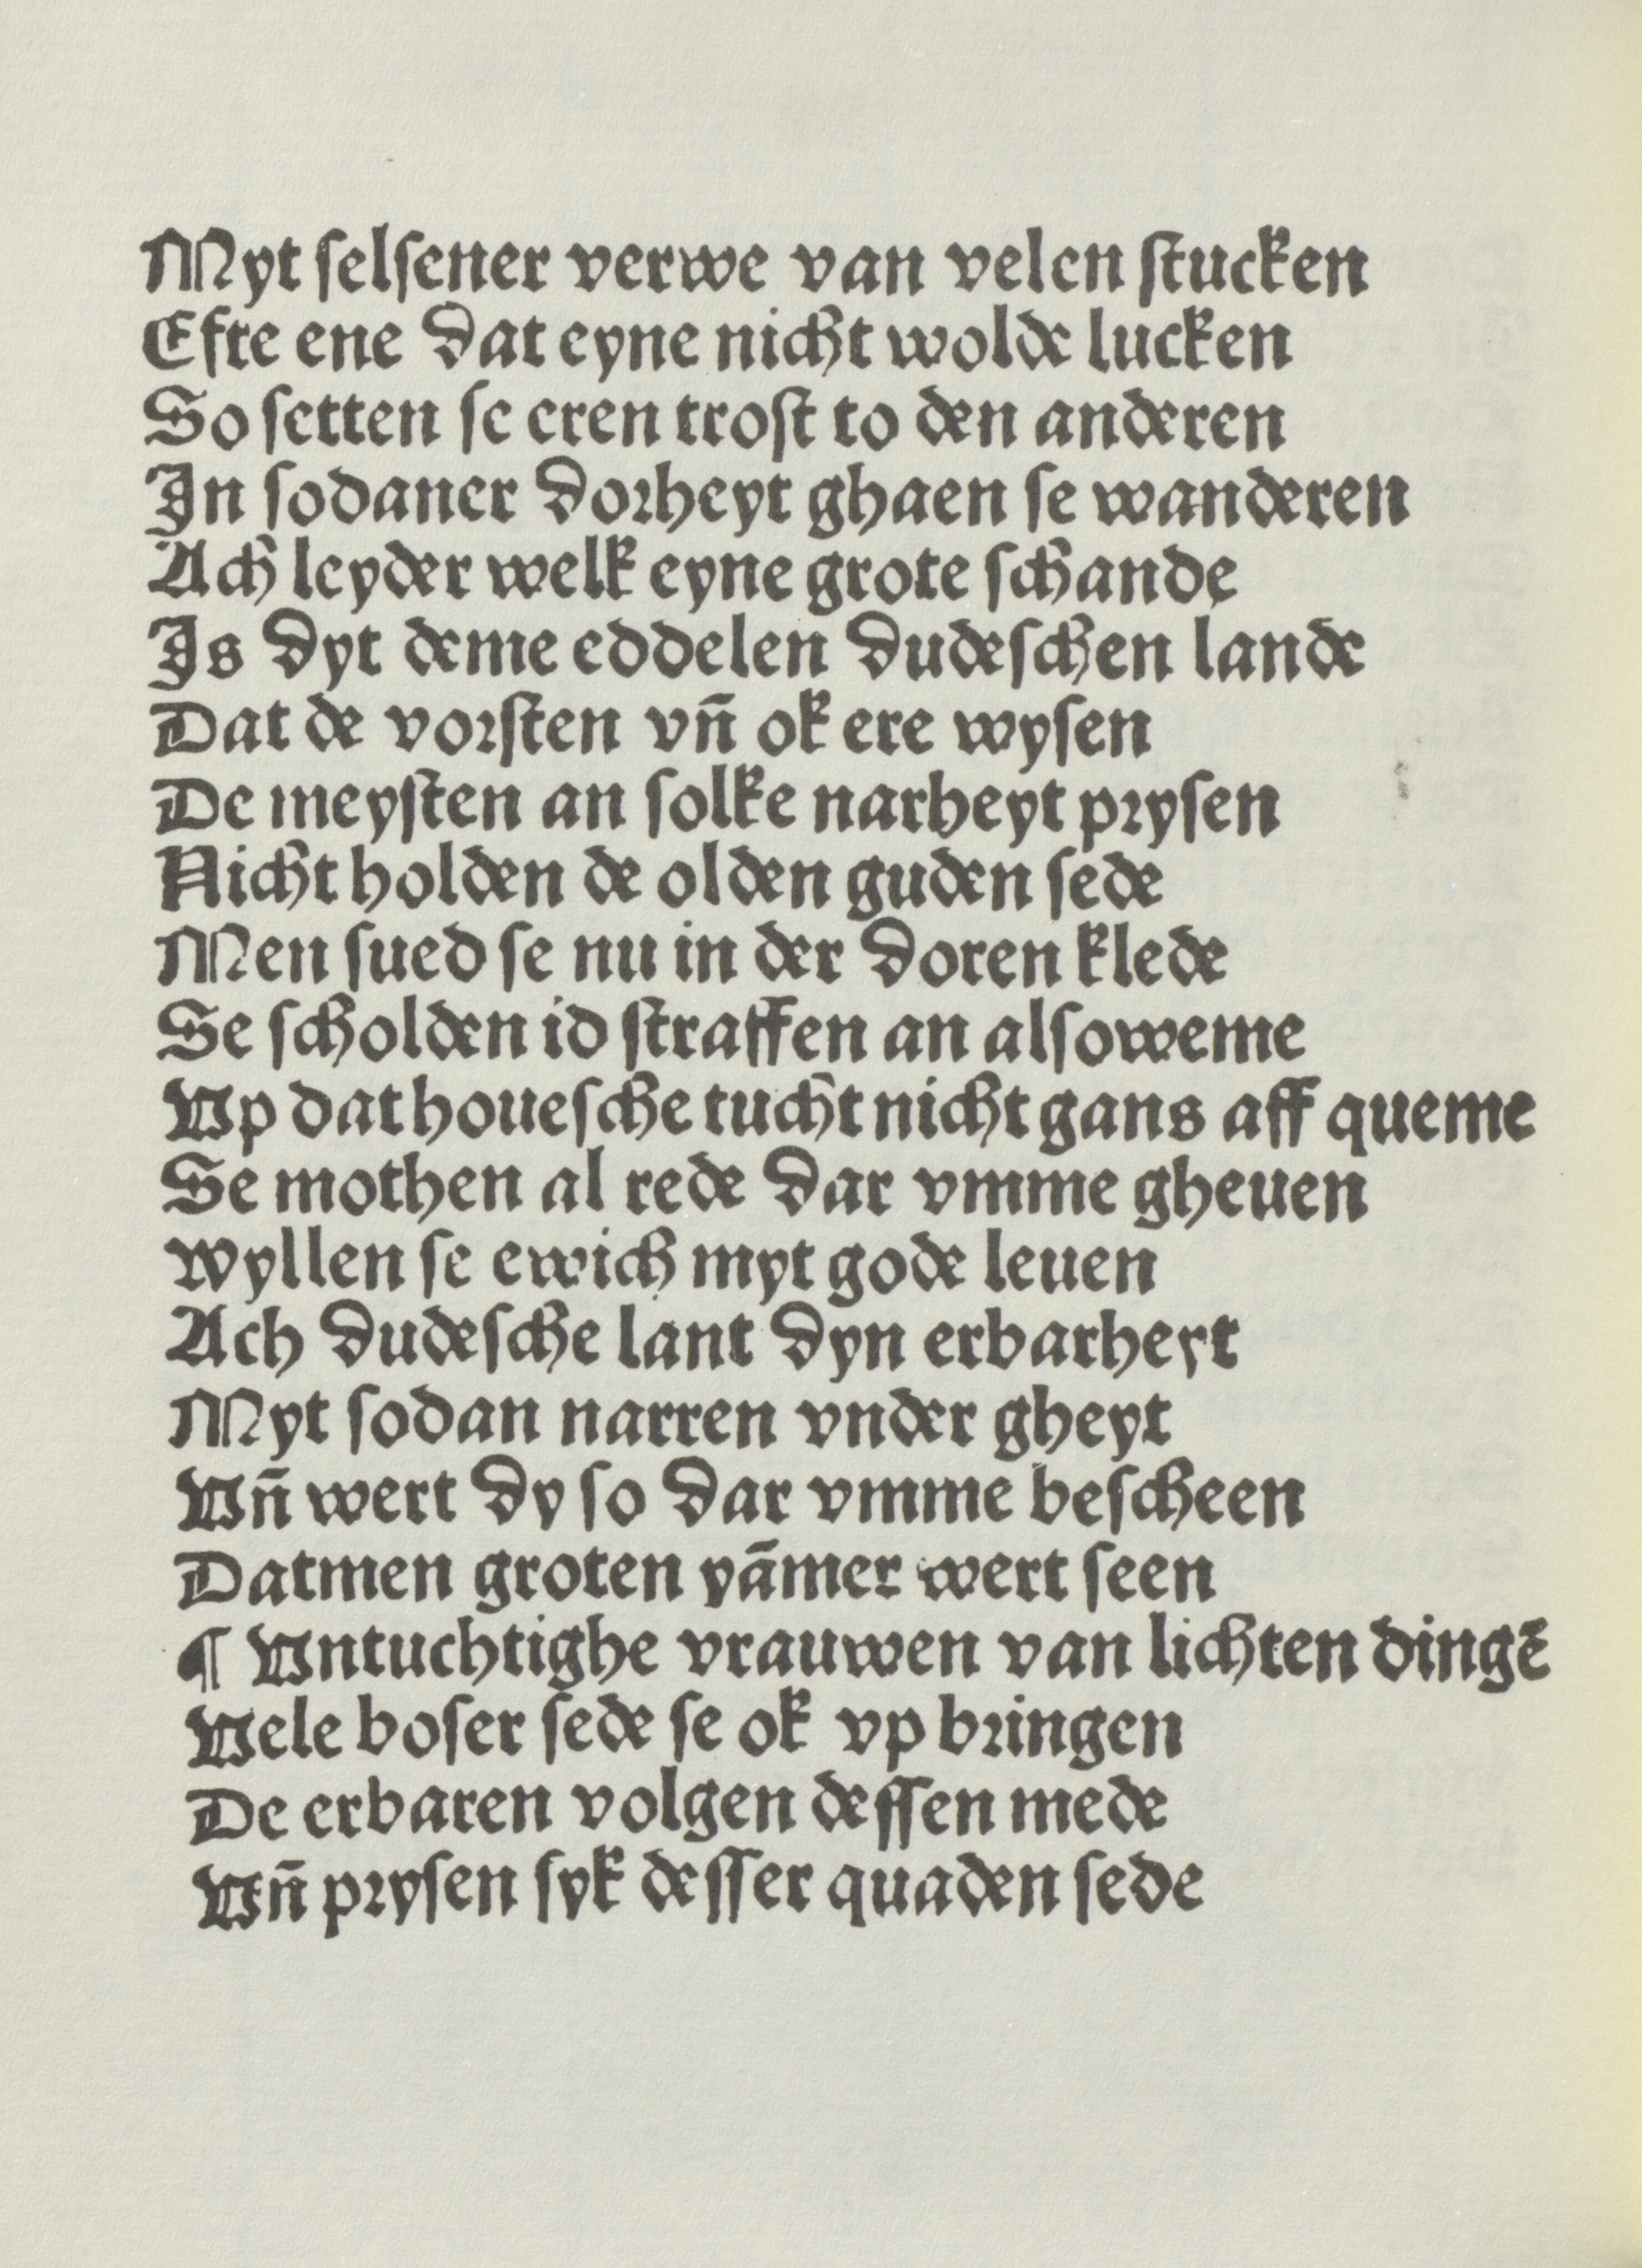 Myt selsener verwe van velen stucken
Efte ene dat eyne nicht wolde lucken
So setten se eren trost to den anderen
In sodaner dorheyt ghaen se wanderen
Ach leyder welk eyne grote schande
Is dyt deme eddelen dudeschen lande
Dat de vorsten vñ ok ere wysen
De meysten an solke narheyt prysen
Nicht holden de olden guden sede
Men sued se nu in der doren klede
Se scholden id straffen an alsoweme
Vp dat houesche tucht nicht gans aff queme
Se mothen al rede dar vmme gheuen
wyllen se ewich myt gode leuen
Ach dudesche lant dyn erbarheyt
Myt sodan narren vnder gheyt
Vñ wert dy so dar vmme bescheen
Datmen groten yāmer wert seen
¶ Vntuchtighe vrauwen van lichten dingē
Vele boser sede se ok vp bringen
De erbaren volgen dessen mede
Vñ prysen syk desser quaden sede